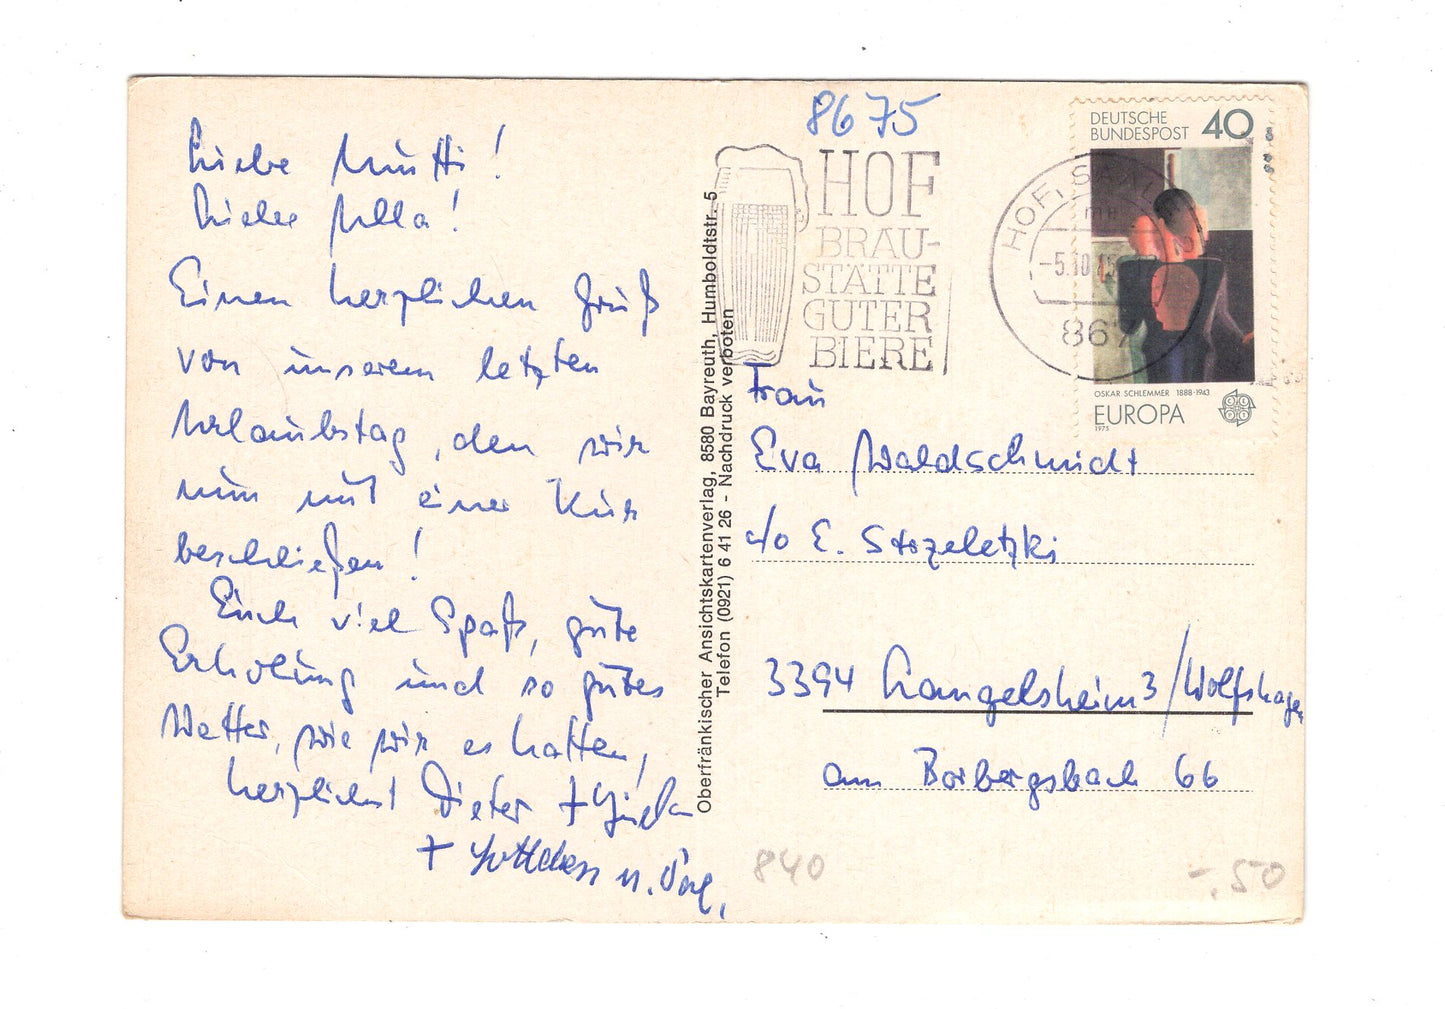 8675
Liebe Mutti!
Liebe Ulla!
Einen herzlichen Gruß
von unserem letzten
Urlaubstag, den wir
nun mit einer Kur
beschließen!
Euch viel Spaß, gute
Erholung und so gutes
Wetter, wie wir es hatten,
herzlichst Dieter +
+ u.
Oberfränkischer Ansichtskartenverlag, 8580 Bayreuth, Humboldtstr. 5
Telefon (0921) 6 41 26 - Nachdruck verboten
HOF
BRAU-
STÄTTE
GUTER
BIERE
HOF, SAALE
-5.10.75
867
DEUTSCHE
BUNDESPOST 40
OSKAR SCHLEMMER 1888-1943
EUROPA
1975
Frau
Eva Waldschmidt
c/o E. Strzeletzki
3394 Langelsheim 3/Wolfshagen
am Borbergsbach 66
840
-.50